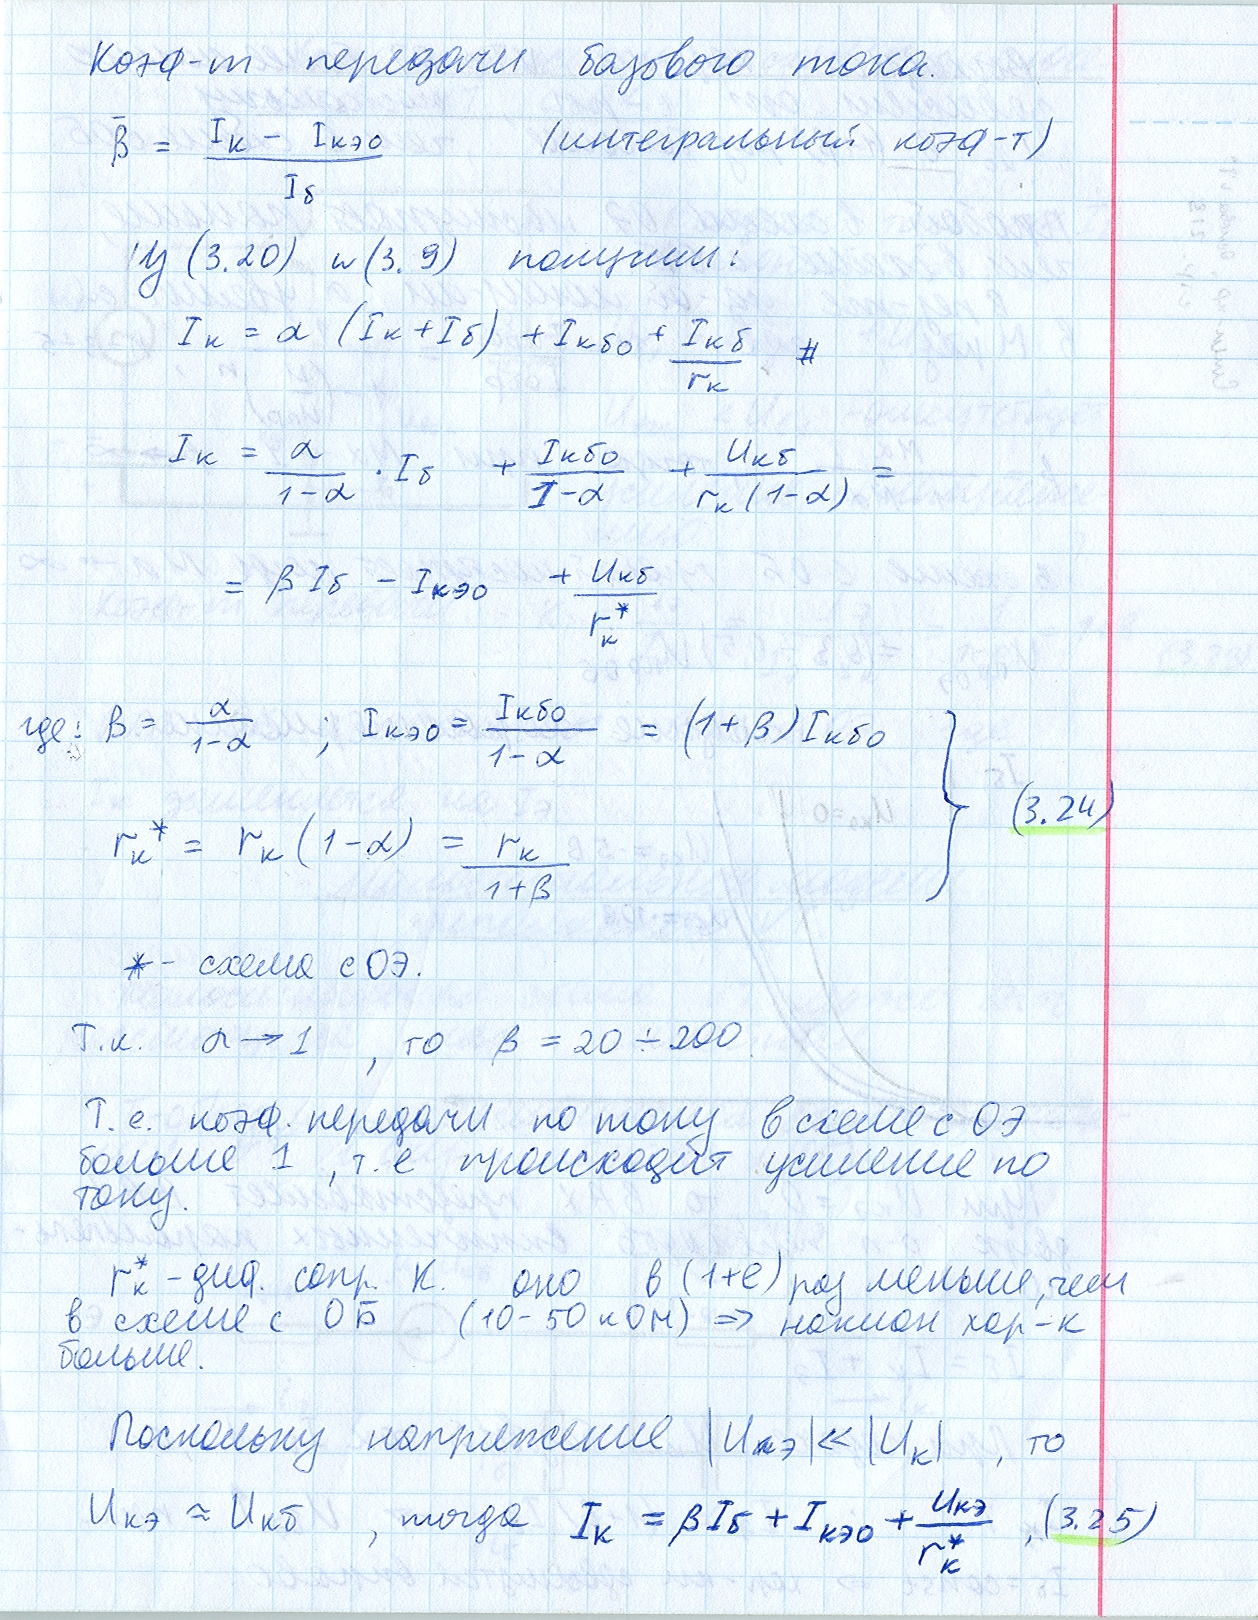 Коэф-т передачи базового тока.
β̄ = (Iк − Iкэо) / Iб (интегральный коэф-т)
Из (3.20) и (3.9) получим:
Iк = α (Iк + Iб) + Iкбо + Iкб / rк #
Iк = α / (1−α) · Iб + Iкбо / (1−α) + Uкб / (rк (1−α)) =
= β Iб − Iкэо + Uкб / rк*
где: β = α / (1−α) ; Iкэо = Iкбо / (1−α) = (1+β) Iкбо
(3.24)
rк* = rк (1−α) = rк / (1+β)
* - схема с ОЭ.
Т.к. α → 1 , то β = 20 ÷ 200
Т.е. коэф. передачи по току в схеме с ОЭ
больше 1 , т.е происходит усиление по
току.
rк* - диф. сопр. К. оно в (1+е) раз меньше, чем
в схеме с ОБ (10 - 50 кОм) => наклон хар-к
больше.
Поскольку напряжение |Uкэ| ≪ |Uк| , то
Uкэ ≈ Uкб , тогда Iк = βIб + Iкэо + Uкэ / rк* , (3.25)